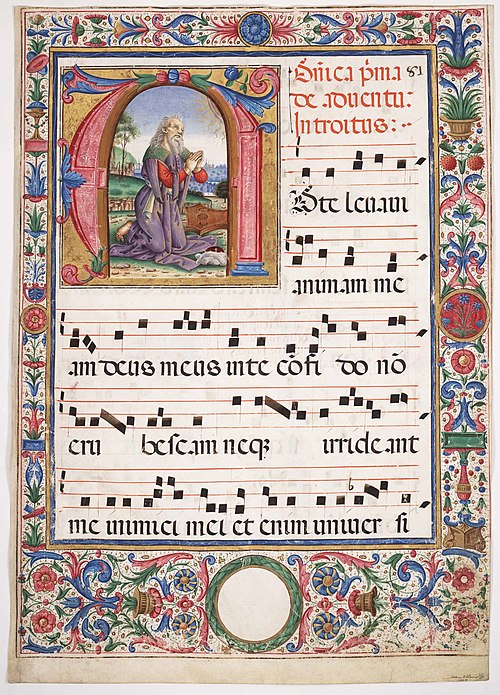 Dn̄ica p̄ma
de aduentu.
Introitus:
AD te leuaui
animam me
am deus meus in te cōfi do nō
eru bescam neqꝫ irride ant
me inimici mei et enim uniuer si